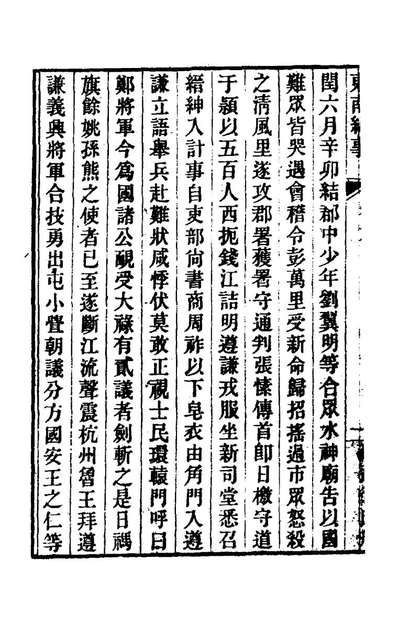 東南紀事
閏六月辛卯結郡中少年劉翼明等合眾水神廟告以國
難眾皆哭遇會稽令彭萬里受新命歸招搖過市眾怒殺
之清風里遂攻郡署獲署守通判張愫傳首卽日檄守道
于頴以五百人西扼錢江詰明遵謙戎服坐新司堂悉召
縉紳入計事自吏部尙書商周祚以下皂衣由角門入遵
謙立語舉兵赴難狀咸悸伏莫敢正視士民環轅門呼曰
鄭將軍今爲國諸公覥受大祿有貳議者劍斬之是日禡
旗餘姚孫熊之使者已至遂斷江流聲震杭州魯王拜遵
謙義興將軍合技勇出屯小舋朝議分方國安王之仁等